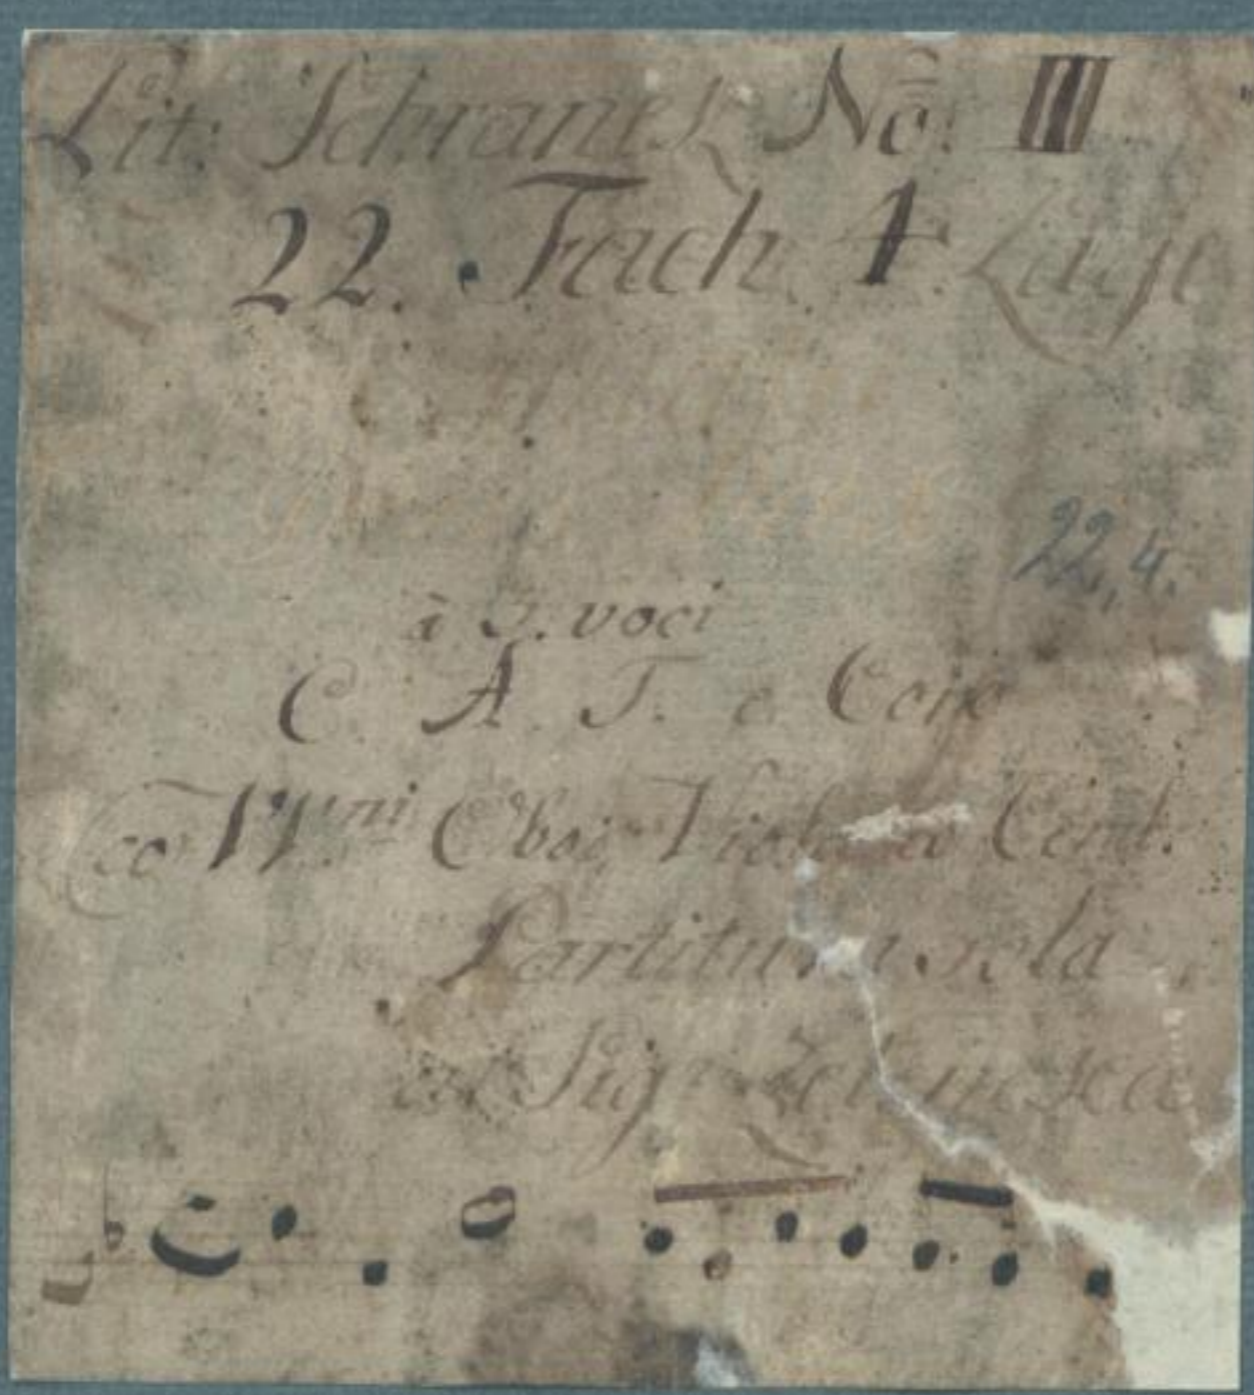 Lit: Schranck No: III
22. Fach 4. Lage
22,4.
à 3. voci
C. A. T. e Coro
co VVni Oboi Viola e Cont.
Partitura sola
del Sigr Zelencka